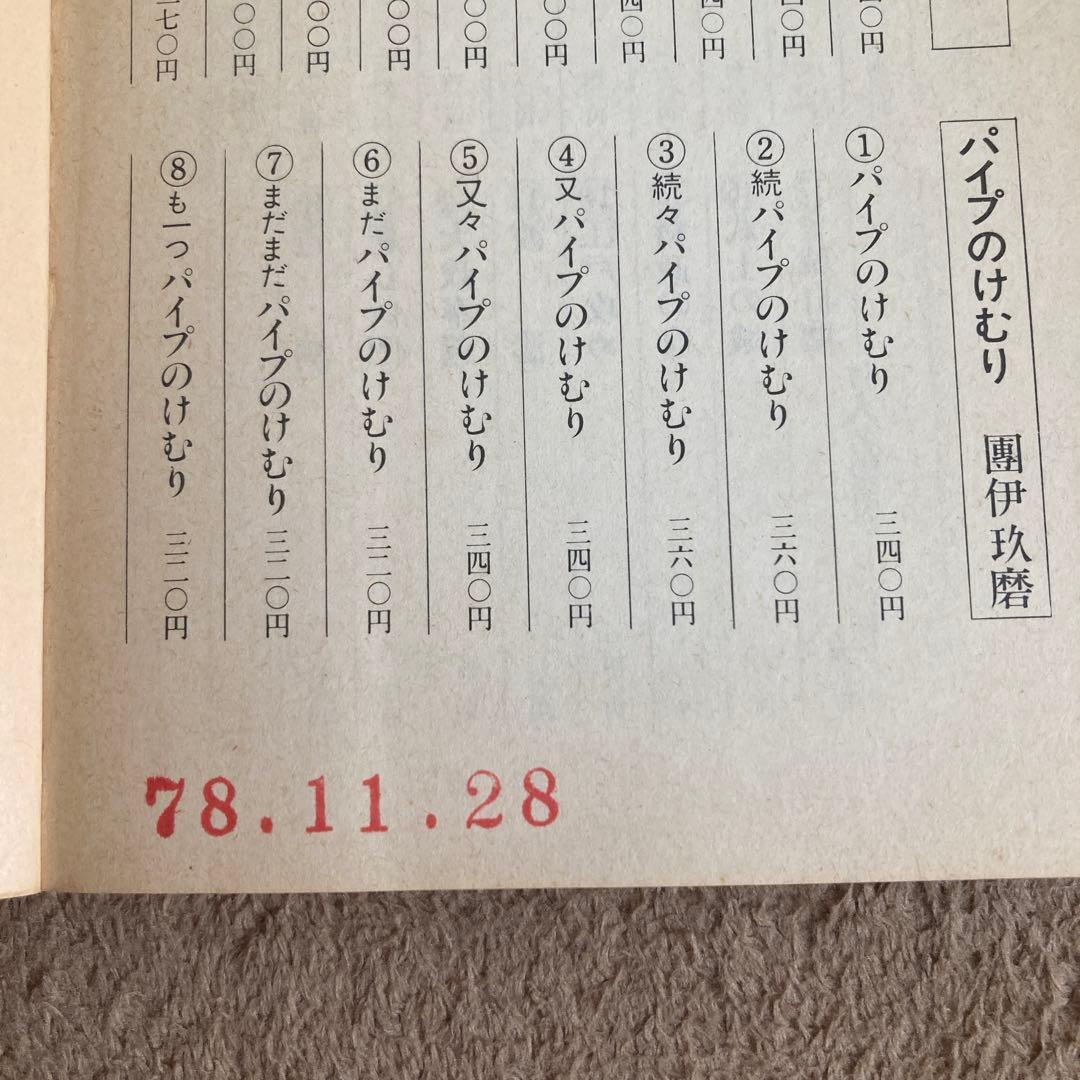 パイプのけむり 團伊玖磨
①パイプのけむり 三四〇円
②続パイプのけむり 三六〇円
③続々パイプのけむり 三六〇円
④又パイプのけむり 三四〇円
⑤又々パイプのけむり 三四〇円
⑥まだパイプのけむり 三二〇円
⑦まだまだパイプのけむり 三二〇円
⑧も一つパイプのけむり 三二〇円
78.11.28